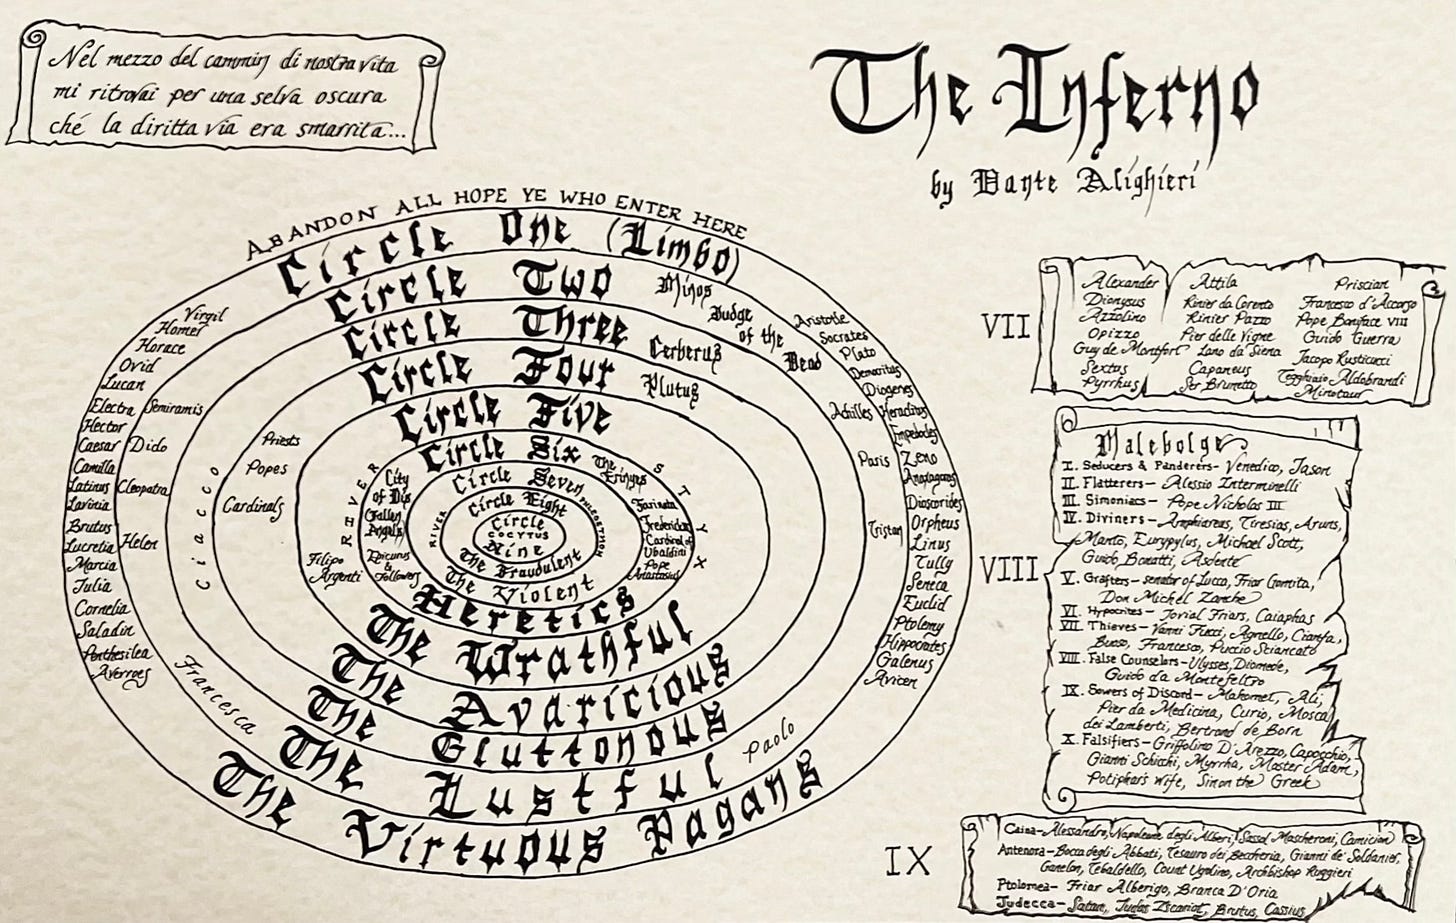 Nel mezzo del cammin di nostra vita
mi ritrovai per una selva oscura
ché la diritta via era smarrita...
The Inferno
by Dante Alighieri
ABANDON ALL HOPE YE WHO ENTER HERE
Circle One (Limbo)
Virgil
Homer
Horace
Ovid
Lucan
Electra
Hector
Caesar
Camilla
Latinus
Lavinia
Brutus
Lucretia
Marcia
Julia
Cornelia
Saladin
Penthesilea
Averroes
Aristotle
Socrates
Plato
Democritus
Diogenes
Heraclitus
Empedocles
Zeno
Anaxagoras
Dioscorides
Orpheus
Linus
Tully
Seneca
Euclid
Ptolemy
Hippocrates
Galenus
Avicen
The Virtuous Pagans
Circle Two
Minos
Judge
of the
Dead
Semiramis
Dido
Cleopatra
Helen
Achilles
Paris
Tristan
Francesca
Paolo
The Lustful
Circle Three
Cerberus
Ciacco
The Gluttonous
Circle Four
Plutus
Priests
Popes
Cardinals
The Avaricious
Circle Five
RIVER
STYX
Filipo
Argenti
The Wrathful
Circle Six
City
of Dis
Fallen
Angels
Epicurus
&
Followers
The
Erinyes
Farinata
Frederick
Cardinal of
Ubaldini
Pope
Anastasius
Heretics
Circle Seven
RIVER
PHLEGETHON
The Violent
Circle Eight
The Fraudulent
Circle
COCYTUS
Nine
VII
Alexander
Dionysus
Azzolino
Opizzo
Guy de Montfort
Sextus
Pyrrhus
Attila
Rinier da Corento
Rinier Pazzo
Pier delle Vigne
Lano da Siena
Capaneus
Ser Brunetto
Priscian
Francesco d'Accorso
Pope Boniface VIII
Guido Guerra
Jacopo Rusticucci
Tegghiaio Aldobrandi
Minotaur
VIII
Malebolge
I. Seducers & Panderers- Venedico, Jason
II. Flatterers- Alessio Interminelli
III. Simoniacs- Pope Nicholas III
IV. Diviners- Amphiareus, Tiresias, Aruns,
Manto, Eurypylus, Michael Scott,
Guido Bonatti, Asdente
V. Grafters- senator of Lucca, Friar Gomita,
Don Michel Zanche
VI. Hypocrites- Jovial Friars, Caiaphas
VII. Thieves- Vanni Fucci, Agnello, Cianfa,
Buoso, Francesco, Puccio Sciancato
VIII. False Counselors- Ulysses, Diomede,
Guido da Montefeltro
IX. Sowers of Discord- Mahomet, Ali,
Pier da Medicina, Curio, Mosca
dei Lamberti, Bertrand de Born
X. Falsifiers- Griffolino D'Arezzo, Capocchio,
Gianni Schicchi, Myrrha, Master Adam,
Potiphar's Wife, Sinon the Greek
IX
Caina- Alessandro, Napoleone degli Alberi, Sassol Mascheroni, Camicion
Antenora- Bocca degli Abbati, Tesauro dei Beccheria, Gianni de' Soldanier,
Ganelon, Tebaldello, Count Ugolino, Archbishop Ruggieri
Ptolomea- Friar Alberigo, Branca D'Oria
Judecca- Satan, Judas Iscariot, Brutus, Cassius